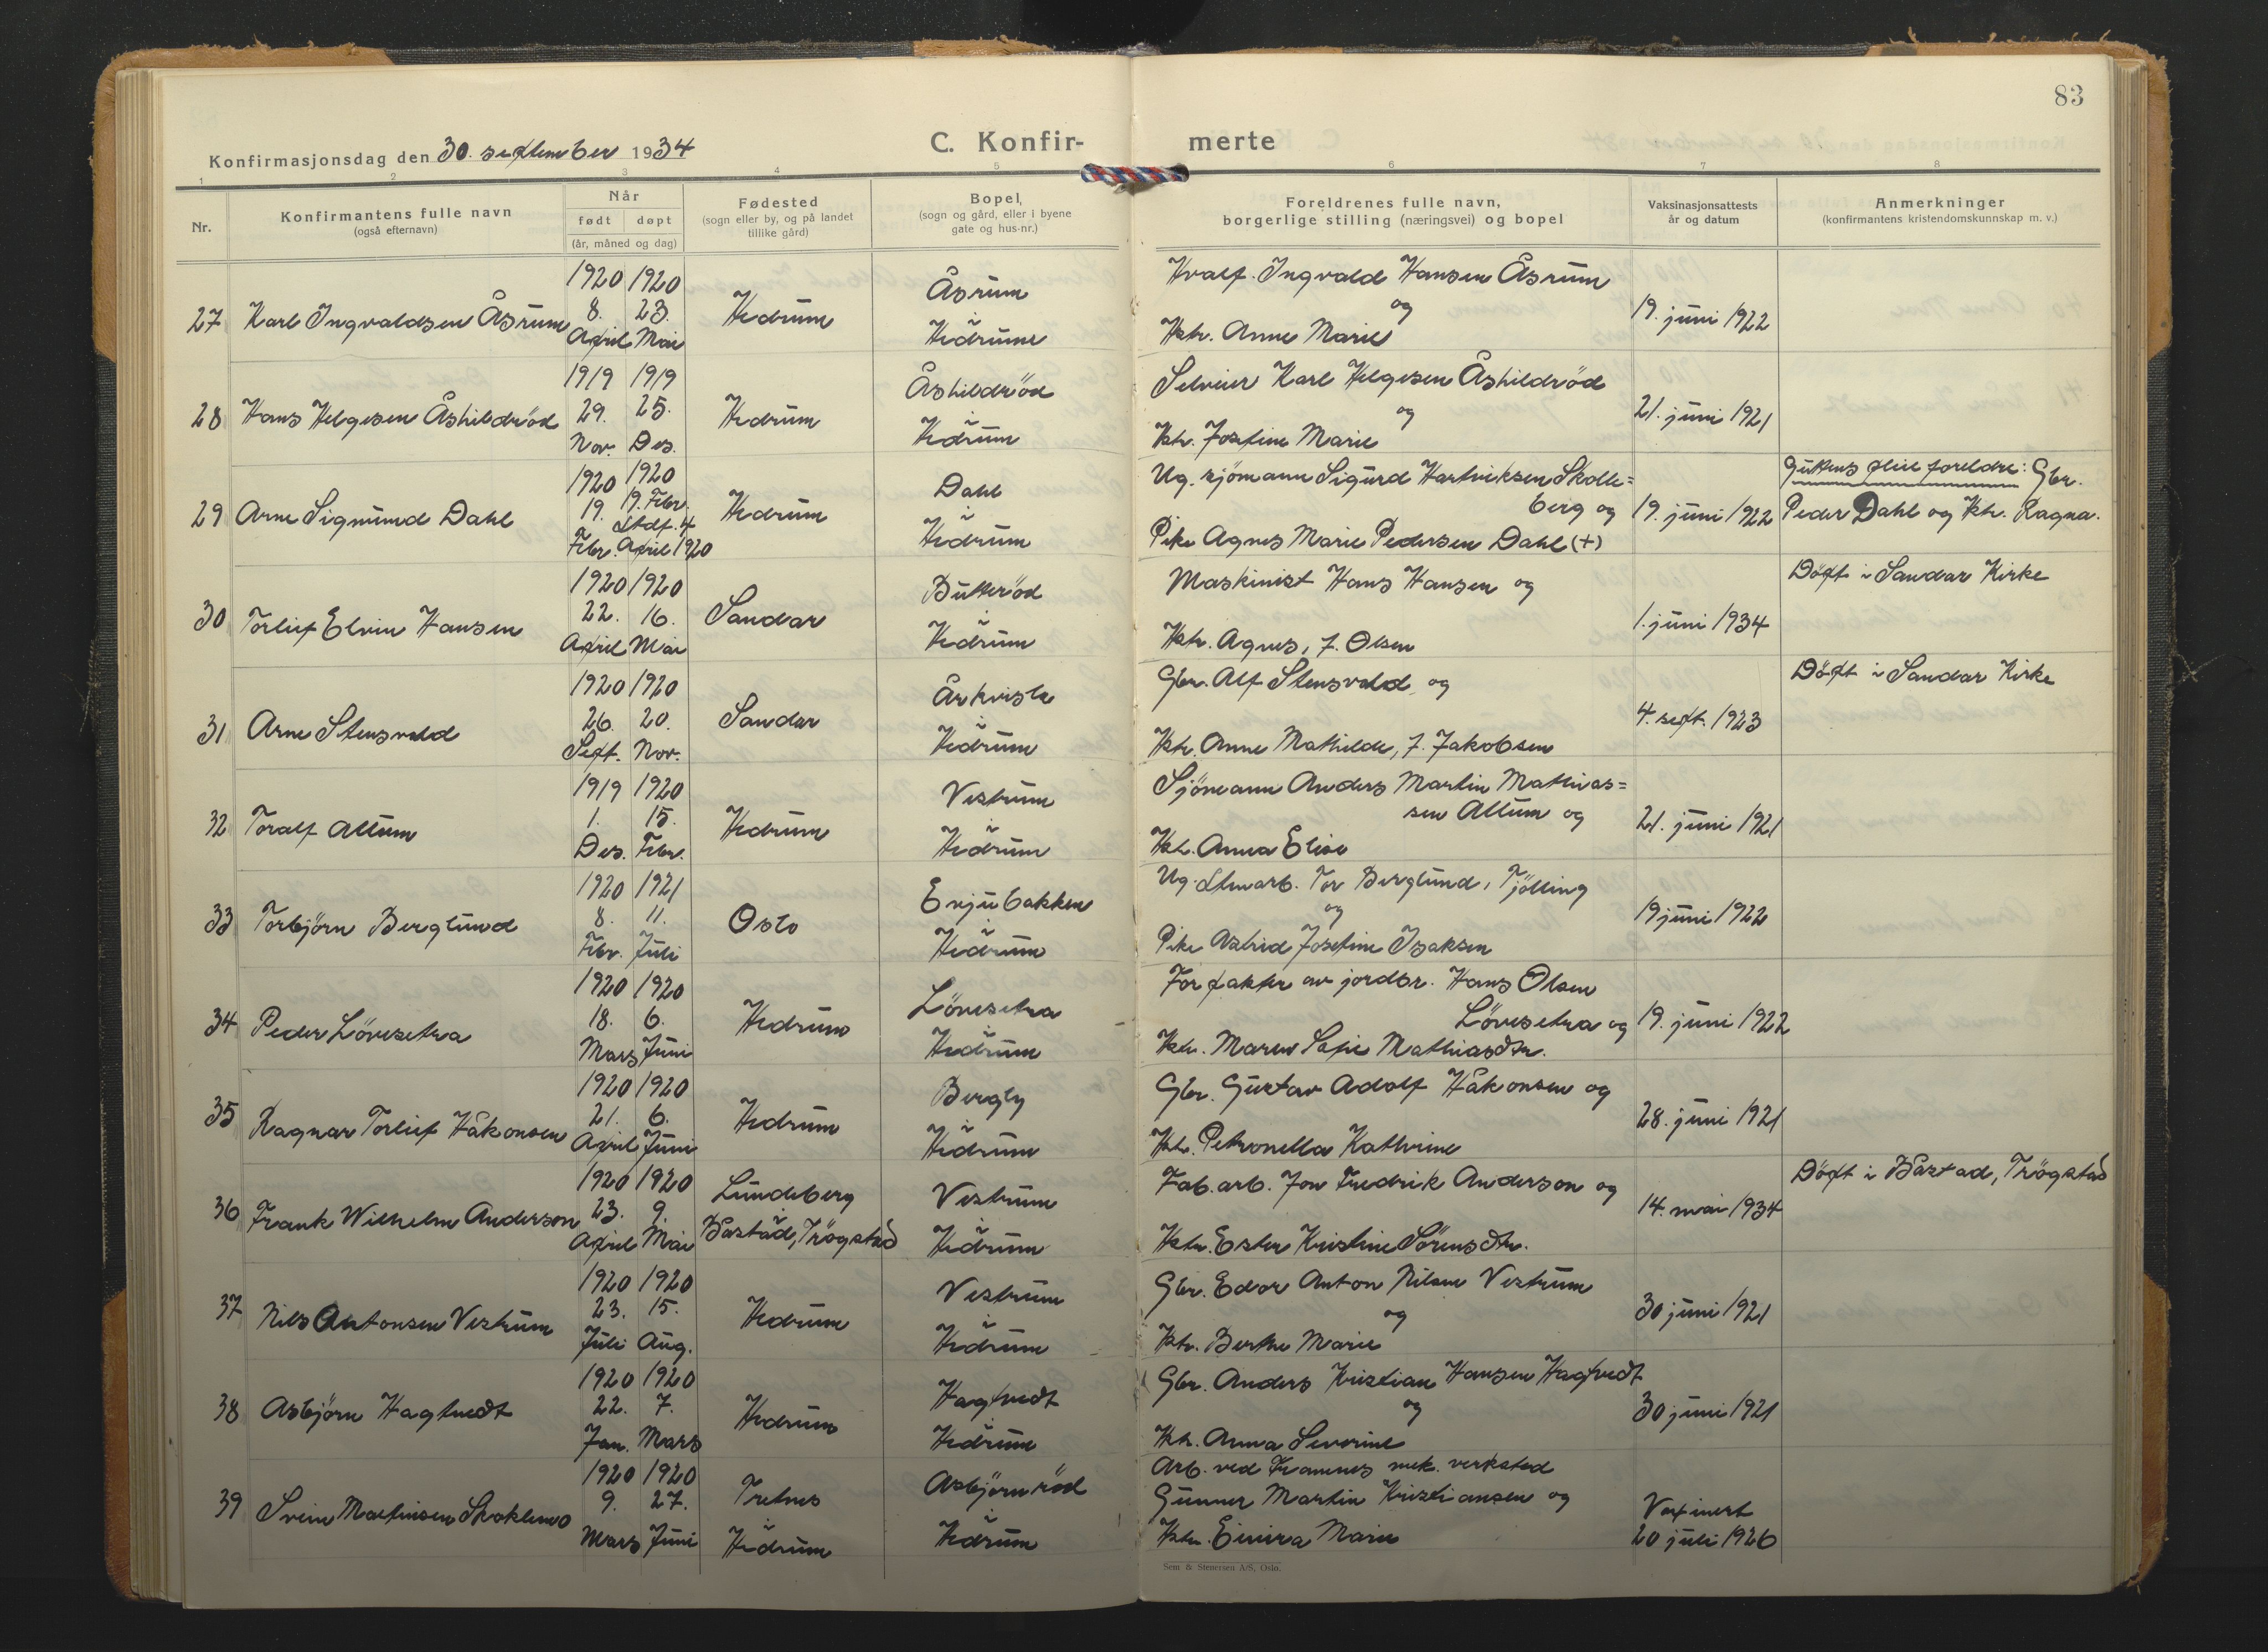 83
Konfirmasjonsdag den 30. september 1934
C. Konfir- merte
1 2 3 4 5 6 7 8
Nr.
Konfirmantens fulle navn
(også efternavn)
Når
født døpt
(år, måned og dag)
Fødested
(sogn eller by, og på landet
tillike gård)
Bopel,
(sogn og gård, eller i byene
gate og hus-nr.)
Foreldrenes fulle navn,
borgerlige stilling (næringsvei) og bopel
Vaksinasjonsattests
år og datum
Anmerkninger
(konfirmantens kristendomskunnskap m. v.)
27 Karl Ingvaldsen Åsrum 1920 8. April 1920 23. Mai Hedrum Åsrum i Hedrum
Hvalf. Ingvald Hansen Åsrum
og
Hstr. Anne Marie
19. juni 1922
28 Hans Helgesen Åshildröd 1919 29. Nov. 1919 25. Des. Hedrum Åshildröd i Hedrum
Selveier Karl Helgesen Åshildröd
og
Hstr. Josefine Marie
21. juni 1921
29 Arne Sigmund Dahl 1920 19. Febr. 1920 19. Febr. Stdf. 4 April 1920 Hedrum Dahl i Hedrum
Ug. sjömann Sigurd Hartviksen Skolle=
berg og
Pike Agnes Marie Pedersen Dahl (+)
19. juni 1922
Guttens pleieforeldre: Gbr.
Peder Dahl og Hstr. Ragna.
30 Torleif Elvin Hansen 1920 22. April 1920 16. Mai Sandar Butteröd i Hedrum
Maskinist Hans Hansen og
Hstr. Agnes, f. Olsen
1. juni 1934
Döpt i Sandar Kirke
31 Arne Stensvold 1920 26. Sept. 1920 20. Nov. Sandar Århvisla i Hedrum
Gbr. Alf Stensvold og
Hstr. Anne Mathilde, f. Jakobsen
4. sept. 1923
Döpt i Sandar Kirke
32 Toralf Allum 1919 1. Des. 1920 15. Febr. Hedrum Vestrum i Hedrum
Sjömann Anders Martin Mathias=
sen Allum og
Hstr. Anna Elise
21. juni 1921
33 Torbjörn Berglund 1920 8. Febr. 1921 11. Juli Oslo Enjubakken i Hedrum
Ug. Stenarb. Tor Berglund, Tjölling
og
Pike Astrid Josefine Isaksen
19 juni 1922
34 Peder Lövesetra 1920 18. Mars 1920 6. Juni Hedrum Lövesetra i Hedrum
Forpakter av jordbr. Hans Olsen
Lövesetra og
Hstr. Maren Sofie Mathiasdtr.
19. juni 1922
35 Ragnar Torleif Håkonsen 1920 21. April 1920 6. Juni Hedrum Bergly i Hedrum
Gbr. Gustav Adolf Håkonsen og
Hstr. Petronella Kathrine
28. juni 1921
36 Frank Wilhelm Anderson 1920 23. April 1920 9. Mai Lundeberg i Båstad, Trögstad Vestrum i Hedrum
Fab. arb. Jon Fredrik Anderson og
Hstr. Ester Kristine Sörensdtr.
14. mai 1934
Döpt i Båstad, Trögstad
37 Nils Antonsen Vestrum 1920 23. Juli 1920 15. Aug. Hedrum Vestrum i Hedrum
Gbr. Edor Anton Nilsen Vestrum
og
Hstr. Berthe Marie
30 juni 1921
38 Asbjörn Hagtvedt 1920 22. Jan. 1920 7. Mars Hedrum Hagtvedt i Hedrum
Gbr. Anders Kristian Hansen Hagtvedt
og
Hstr. Anna Severine
30 juni 1921
39 Svein Martinsen Skoklemo 1920 9. Mars 1920 27. Juni Tretnes i Hedrum Asbjörnröd i Hedrum
Arb. ved Framnes mek. verksted
Gunner Martin Kristiansen og
Hstr. Einira Marie
Vaxinert
20 juli 1926
Sem & Stenersen A/S, Oslo.